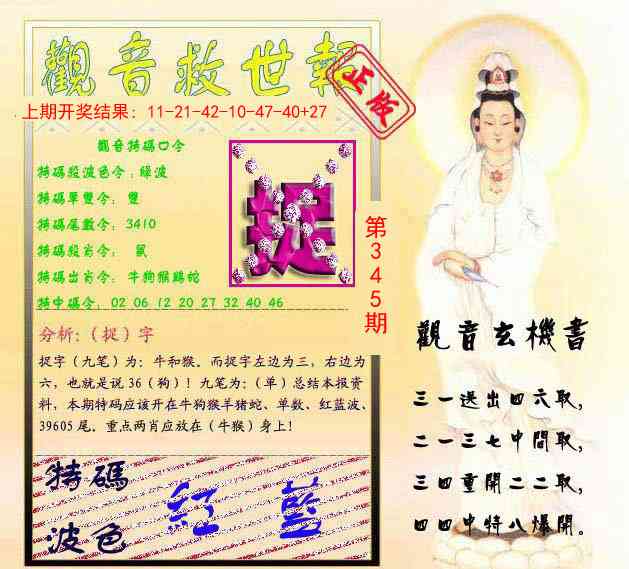 觀音救世報
正版
上期开奖结果：11-21-42-10-47-40+27
觀音特碼口令
特碼殺波色令：綠波
特碼單雙令：雙
特碼尾數令：3410
特碼殺肖令：鼠
特碼出肖令：牛狗猴鷄蛇
特中碼令：02 06 12 20 27 32 40 46
捉
第345期
分析:（捉）字
捉字（九笔）为：牛和猴。而捉字左边为三，右边为
六，也就是说 36（狗）！九笔为：（单）总结本报资
料，本期特码应该开在牛狗猴羊猪蛇、单数、红蓝波、
39605 尾。重点两肖应放在（牛猴）身上！
特碼
波色
紅 藍
觀音玄機書
三一送出四六取，
二一三七中間取，
三四重開二二取，
四四中特八爆開。